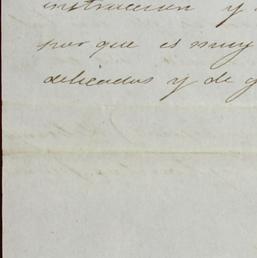 instruccion y
por que es muy
delicadas y de g